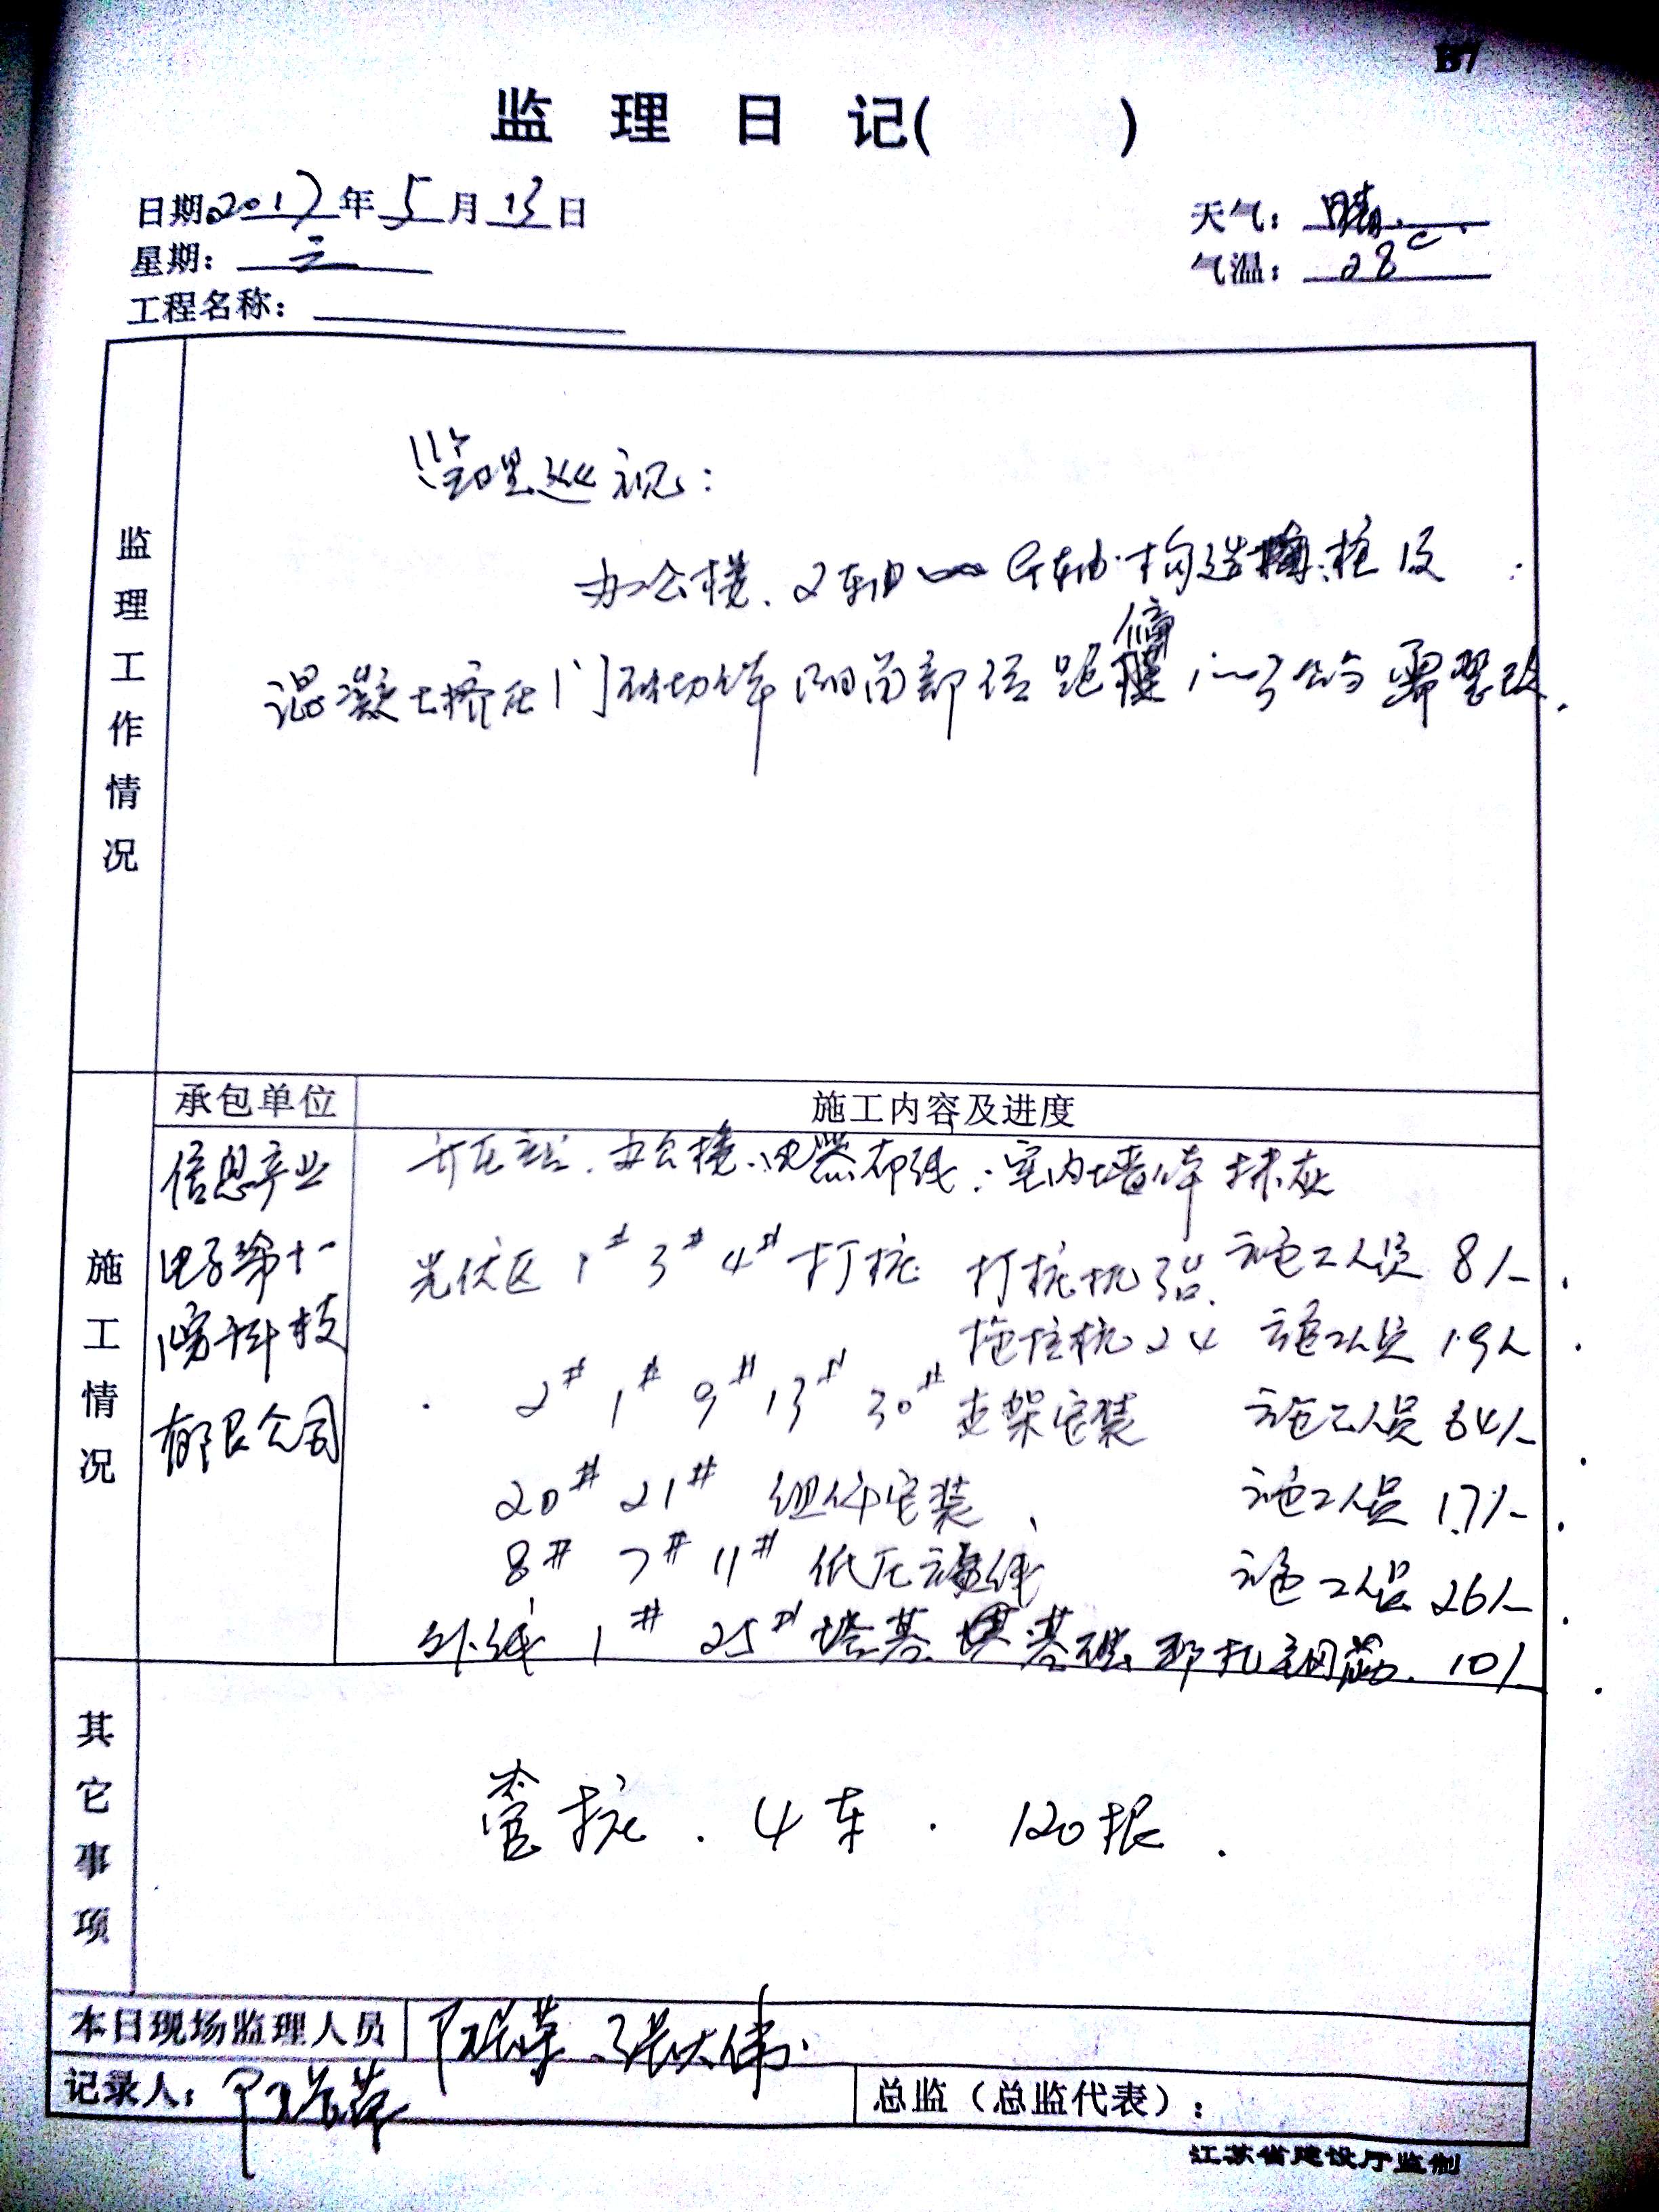 B7
监 理 日 记( )
日期2017年5月13日
天气：晴.
星期：三
气温：28℃
工程名称：
监理工作情况
监理巡视：
办公楼、2轴 G轴构造柱及
混凝土挤压门 砌体 部位 偏 1—3公分 需整改.
承包单位
施工内容及进度
施工情况
信息产业
电子第十一
科技
有限公司
升压站、办公楼、电器布线；室内墙体抹灰
光伏区 1# 3# 4# 打桩 打桩机3台. 施工人员 8人.
拖桩机 24 施工人员 19人.
2# 1# 9# 13# 30# 支架安装 施工人员 64人.
20# 21# 组件安装、 施工人员 17人.
8# 7# 11# 低压 线 施工人员 26人.
外线 1# 25# 塔基 基础 绑扎钢筋. 10人.
其它事项
管桩. 4车. 120根.
本日现场监理人员
张大伟
记录人：
总监（总监代表）：
江苏省建设厅监制